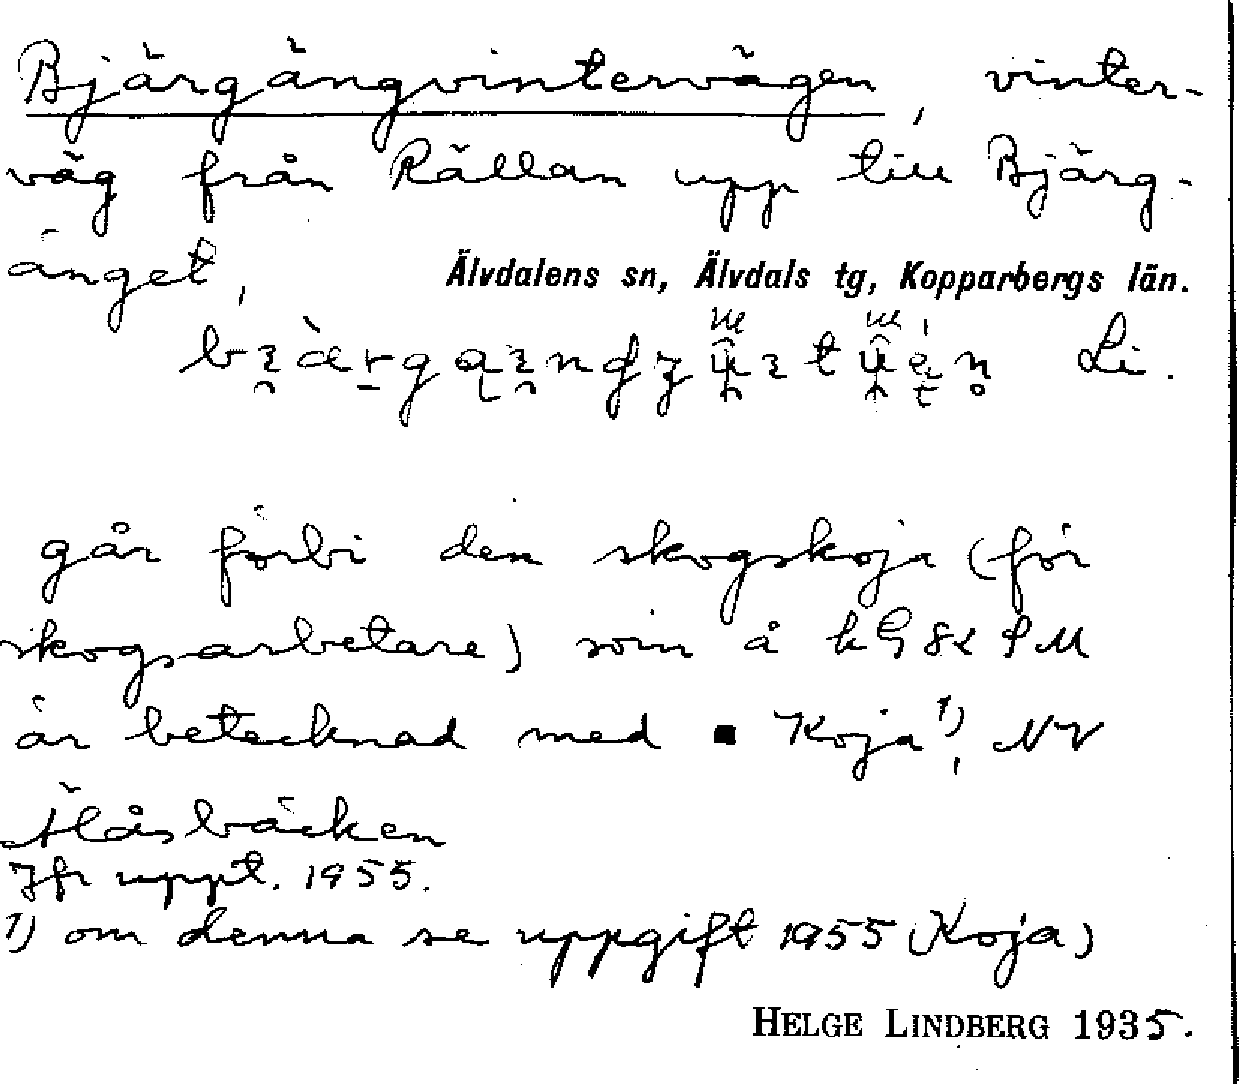 Bjärgängvintervägen, vinter-
väg från Rällan upp till Bjärg-
änget,
Älvdalens sn, Älvdals tg, Kopparbergs län.
Li.
går förbi den skogskoja (för
skogsarbetare) som å kG 82 SM
är betecknad med ▪ Koja¹⁾, NV
Ålåsbäcken
Jfr uppt. 1955.
1) om denna se uppgift 1955 (Koja)
HELGE LINDBERG 1935.